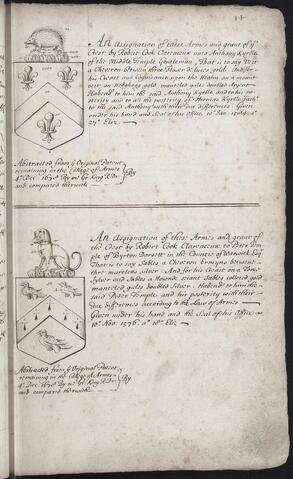 14
An Assignation of these Armes and grant of yᵉ
Crest by Robert Cook Clarenceux unto Anthony Kyrle
of the Middle Temple Gentleman, That is to say Vert
a Cheveron between three Flower de luces gold. And for
his Creast and Cognisance upon the Healm on a mount
vert an hedgehog gold, manteled gules doubled Argent
to him the said Anthony Kyrle and to his po-
sterity and to all the posterity of Thomas Kyrle fath
to the said Anthony with their due differences. Given
under his hand and Seal of his Office 10 Jan:
27° Eliz.
Abstracted from yᵉ Original Patent
remaining in the College of Armes
4° Dec: 1670 By me Gr: King R:dr:
and compared therewith
By
An Assignation of these Armes and grant of
the Crest by Robert Cook Clarenceux to Peter Tem-
ple of Byrton Dorsett in the County of Warwick Esqʳ
That is to say Sables a Cheveron Ermyne between
three martelets silver. And for his Creast on a Torse
Sylver and Sables a Hounde seiant Sables collered gold
manteled gules doubled Silver. to him the
said Peter Temple and his posterity with their
due differences according to the Law of Armes
Given under his hand and the Seal of his Office
10° Nov. 1576. a° 18° Eliz
Abstracted from yᵉ Original Patent
remaining in yᵉ College of Armes
4° Dec: 1670 By me Gr: King R:dr:
and compared therewith
By